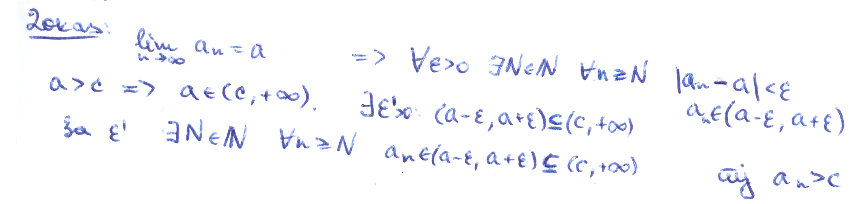 Dokaz: lim_{n→∞} a_n = a => ∀ε>0 ∃N∈ℕ ∀n≥N |a_n-a|<ε
a>c => a∈(c,+∞). ∃ε'>0 (a-ε,a+ε)⊆(c,+∞) a_n∈(a-ε,a+ε)
za ε' ∃N∈ℕ ∀n≥N a_n∈(a-ε,a+ε)⊆(c,+∞)
tij a_n>c